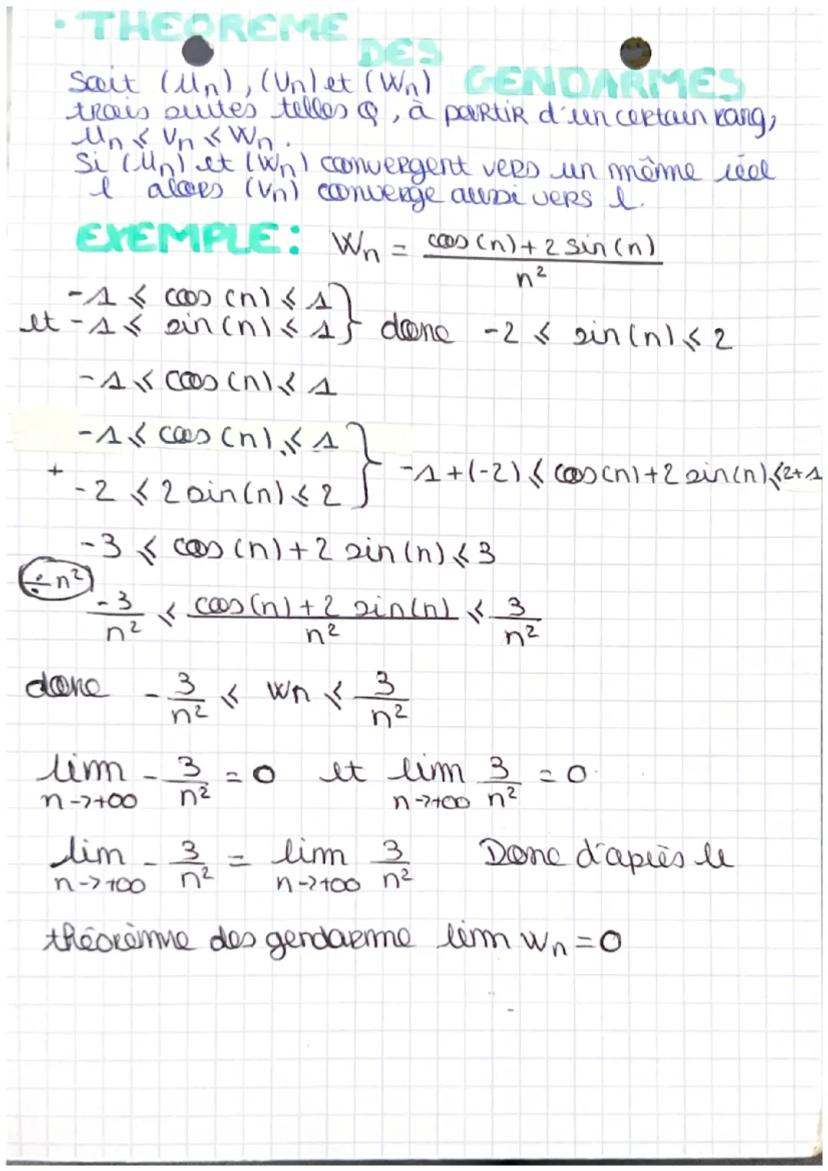 • THEOREME DES GENDARMES
Soit (Un), (Vn) et (Wn)
trois suites telles Q, à partir d'un certain rang,
Un ⩽ Vn ⩽ Wn.
Si (Un) et (Wn) convergent vers un même réel
l alors (Vn) converge aussi vers l.
EXEMPLE : Wn = (cos(n) + 2 sin(n)) / n²
-1 ⩽ cos(n) ⩽ 1
et -1 ⩽ sin(n) ⩽ 1 } donc -2 ⩽ sin(n) ⩽ 2
-1 ⩽ cos(n) ⩽ 1
-1 ⩽ cos(n) ⩽ 1
+ -2 ⩽ 2 sin(n) ⩽ 2 } -1+(-2) ⩽ cos(n)+2 sin(n) ⩽ 2+1
-3 ⩽ cos(n) + 2 sin(n) ⩽ 3
÷ n²
-3/n² ⩽ (cos(n) + 2 sin(n))/n² ⩽ 3/n²
donc -3/n² ⩽ Wn ⩽ 3/n²
lim n->+∞ -3/n² = 0 et lim n->+∞ 3/n² = 0
lim n->+∞ -3/n² = lim n->+∞ 3/n² Donc d'après le
théorème des gendarme lim Wn = 0